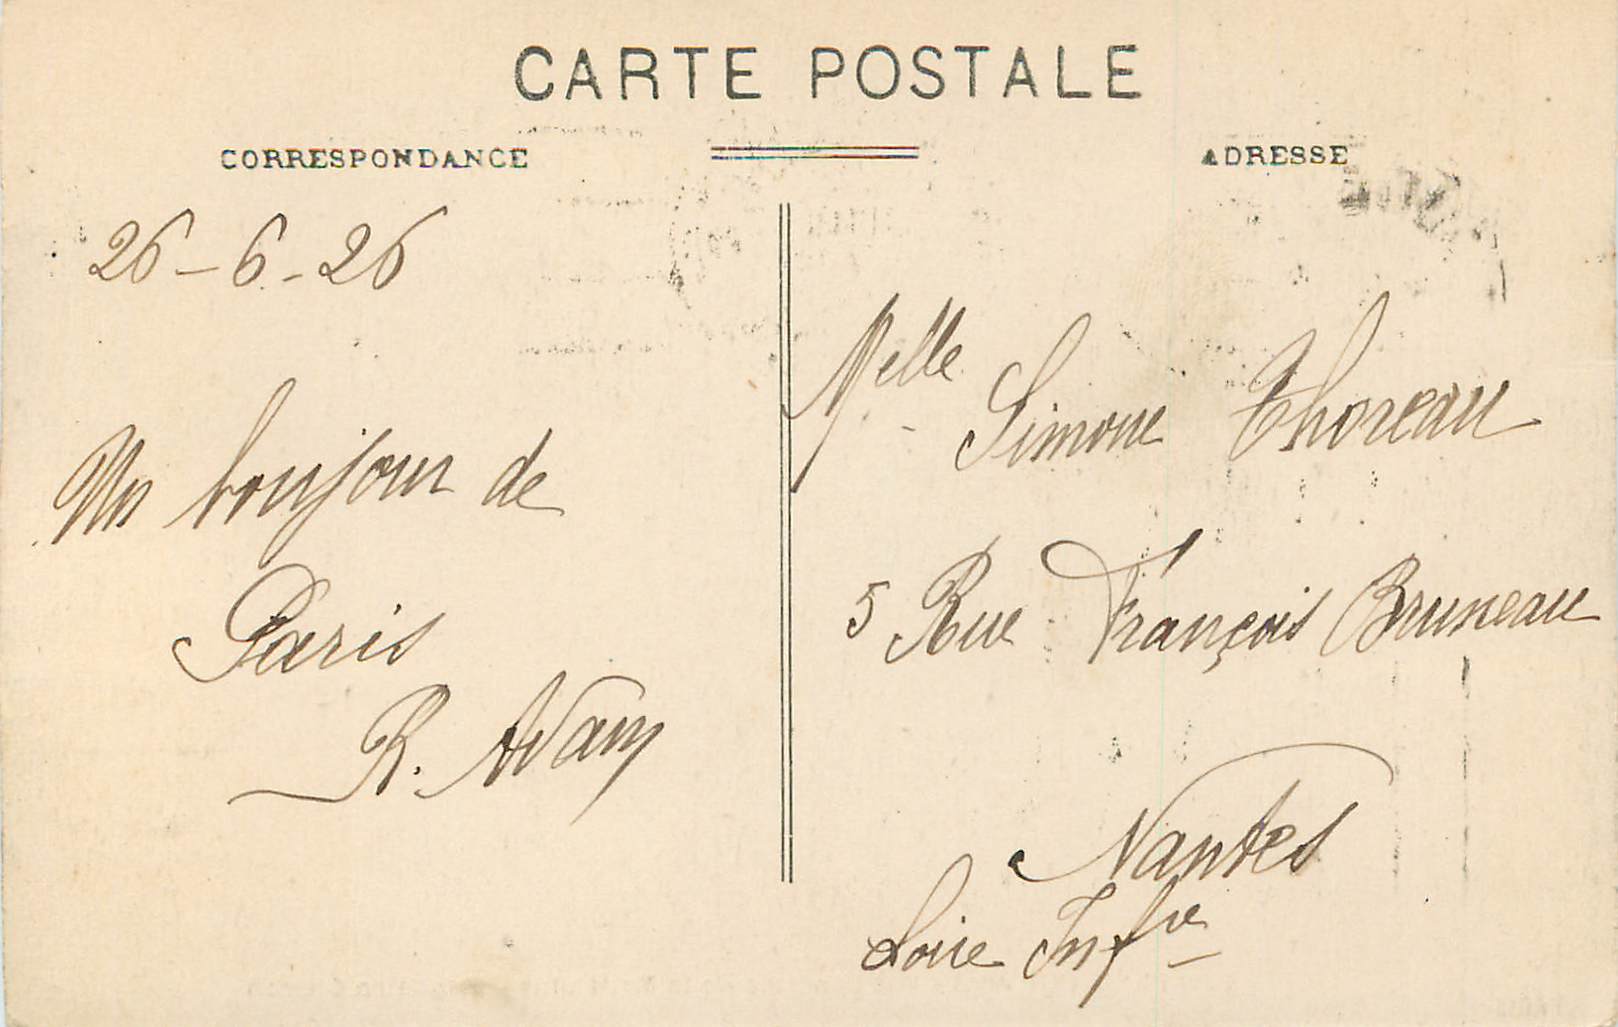 CARTE POSTALE
CORRESPONDANCE
ADRESSE
26-6-26
Un bonjour de
Paris
R. Adam
Melle Simone Thoreau
5 Rue François Bruneau
Nantes
Loire Infre